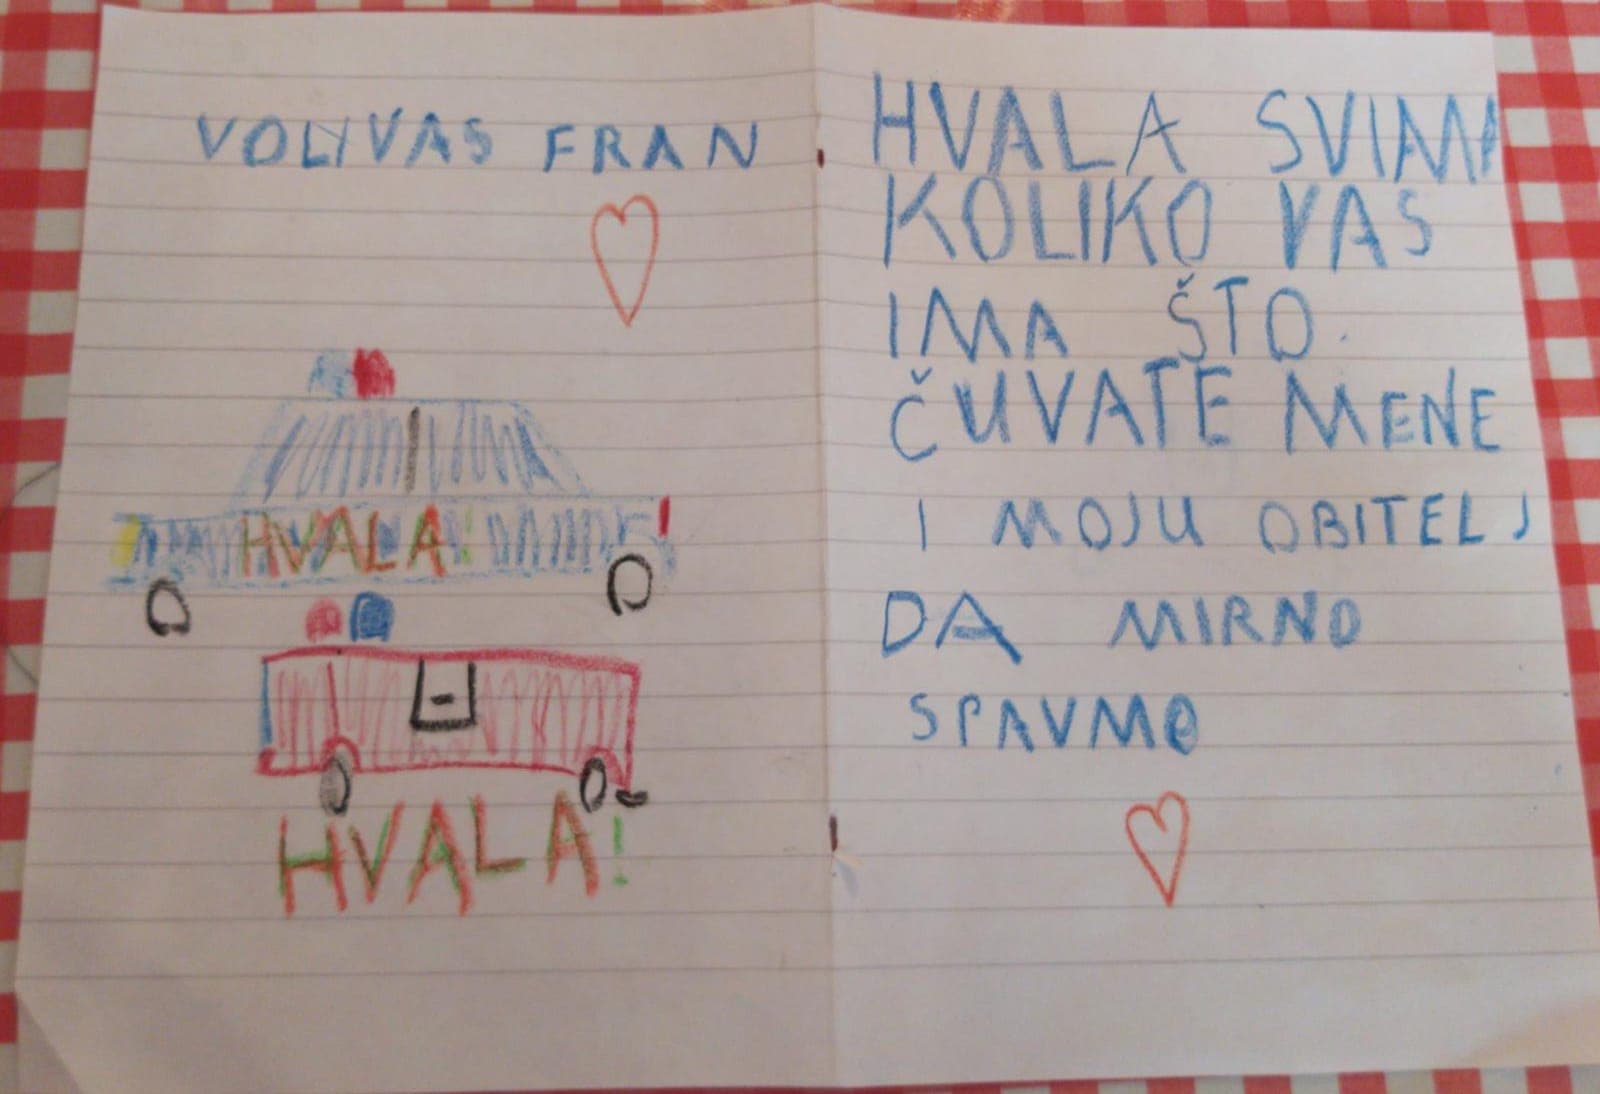 VOLI VAS FRAN
HVALA!
HVALA!
HVALA SVIMA
KOLIKO VAS
IMA ŠTO
ČUVATE MENE
I MOJU OBITELJ
DA MIRNO
SPAVMO